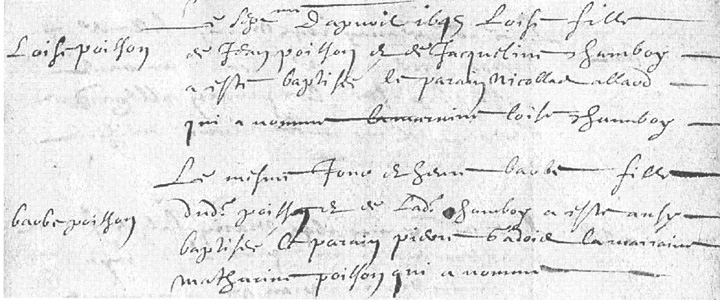 Le 7eme D'apvril 1645 Loise fille
Loise poisson
de Jean poisson et de Jacqueline chamboy
a este baptisée le parain Nicollas allard
qui a nommé la marraine loise chamboy
Le mesme Jour et heure barbe fille
barbe poisson
dud. poisson et de Lad. chamboy a este aussy
baptisée le parain pierre la marraine
mathurine poisson qui a nommé